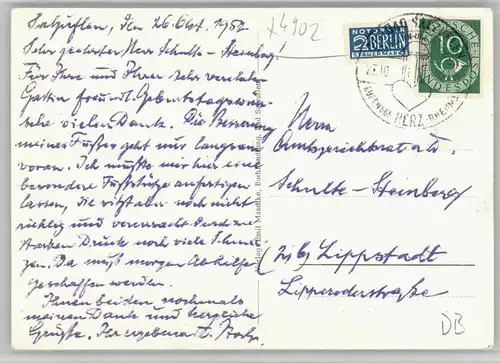 Salzuflen, den 26. Okt. 1952
x4902
Sehr geehrter Herr Schulte-Steinberg!
Für Ihre und Ihrer sehr verehrten
Gattin freundl. Geburtstagswün-
sche vielen Dank. Die Besserung
meines Fußes geht nur langsam
voran. Ich mußte mir hier eine
besondere Fußstütze anfertigen
lassen, die sitzt aber noch nicht
richtig und verursacht durch zu
starken Druck noch viele Schmer-
zen. Da muß morgen Abhilfe
geschaffen werden.
Ihnen beiden nochmals
meinen Dank und herzliche
Grüße. Ihr ergebenst
NOTOPFER
2 BERLIN
STEUERMARKE
DEUTSCHE
BUNDESPOST
10
BAD SALZ
HERZ
RHEUMA
Herrn
Amtsgerichtsrat a. D.
Schulte-Steinberg
(21b) Lippstadt
Lipperoderstraße
DB